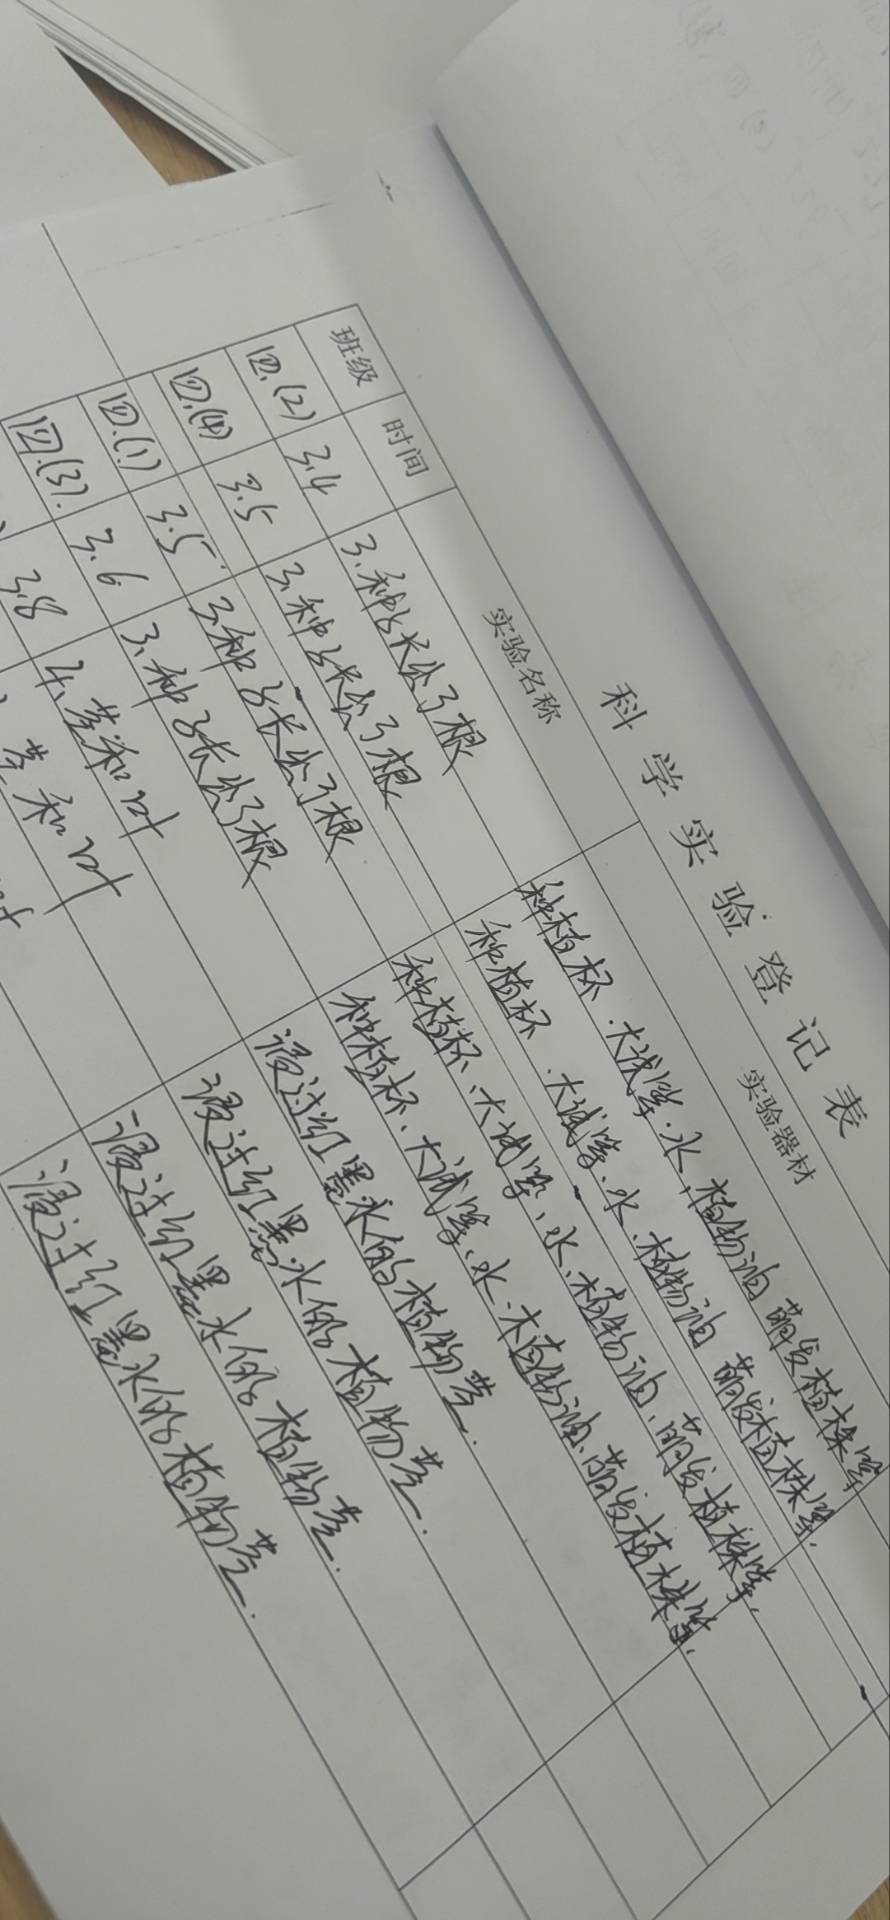 科学实验登记表
班级 时间 实验名称 实验器材
四.(2) 3.4 3.种子长出了根 种植杯.大试管.水.植物油 萌发植株等
四.(4) 3.5 3.种子长出了根 种植杯.大试管.水.植物油 萌发植株等.
四.(1) 3.5 3.种子长出了根 种植杯、大试管、水、植物油、萌发植株等.
四.(3). 3.6 3.种子长出了根 种植杯、大试管、水.植物油、萌发植株等.
3.8 4.茎和叶 浸过红墨水的植物茎.
茎和叶 浸过红墨水的植物茎.
浸过红墨水的植物茎.
浸过红墨水的植物茎.